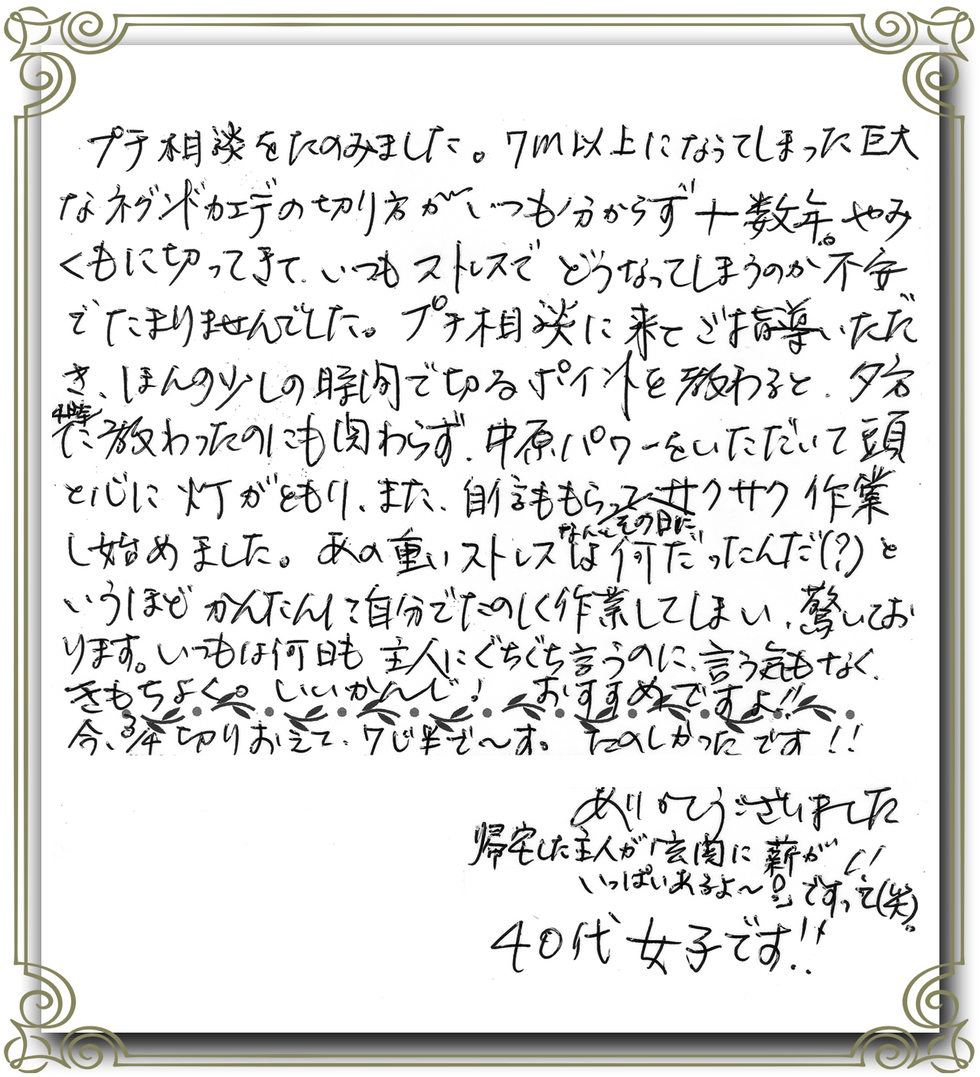 プチ相談をたのみました。7m以上になってしまった巨大
なネグンドカエデの切り方がいつも分からず十数年。やみ
くもに切ってきて、いつもストレスでどうなってしまうのか不安
でたまりませんでした。プチ相談に来てご指導いただ
き、ほんの少しの時間で切るポイントを教わると、夕方
4時半に教わったのにも関わらず、中原パワーをいただいて頭
と心に灯がともり、また、自信ももらってなんとその日にサクサク作業
し始めました。あの重いストレスは何だったんだ(?)と
いうほどかんたんに自分でたのしく作業してしまい、驚いてお
ります。いつもは何日も主人にぐちぐち言うのに、言う気もなく、
きもちよく。いいかんじ!おすすめですよ!!
今、3/4切りおえて、7じ半で〜す。たのしかったです!!
ありがとうございました
帰宅した主人が「玄関に薪が
いっぱいあるよ〜!!」ですって(笑)。
40代女子です!!